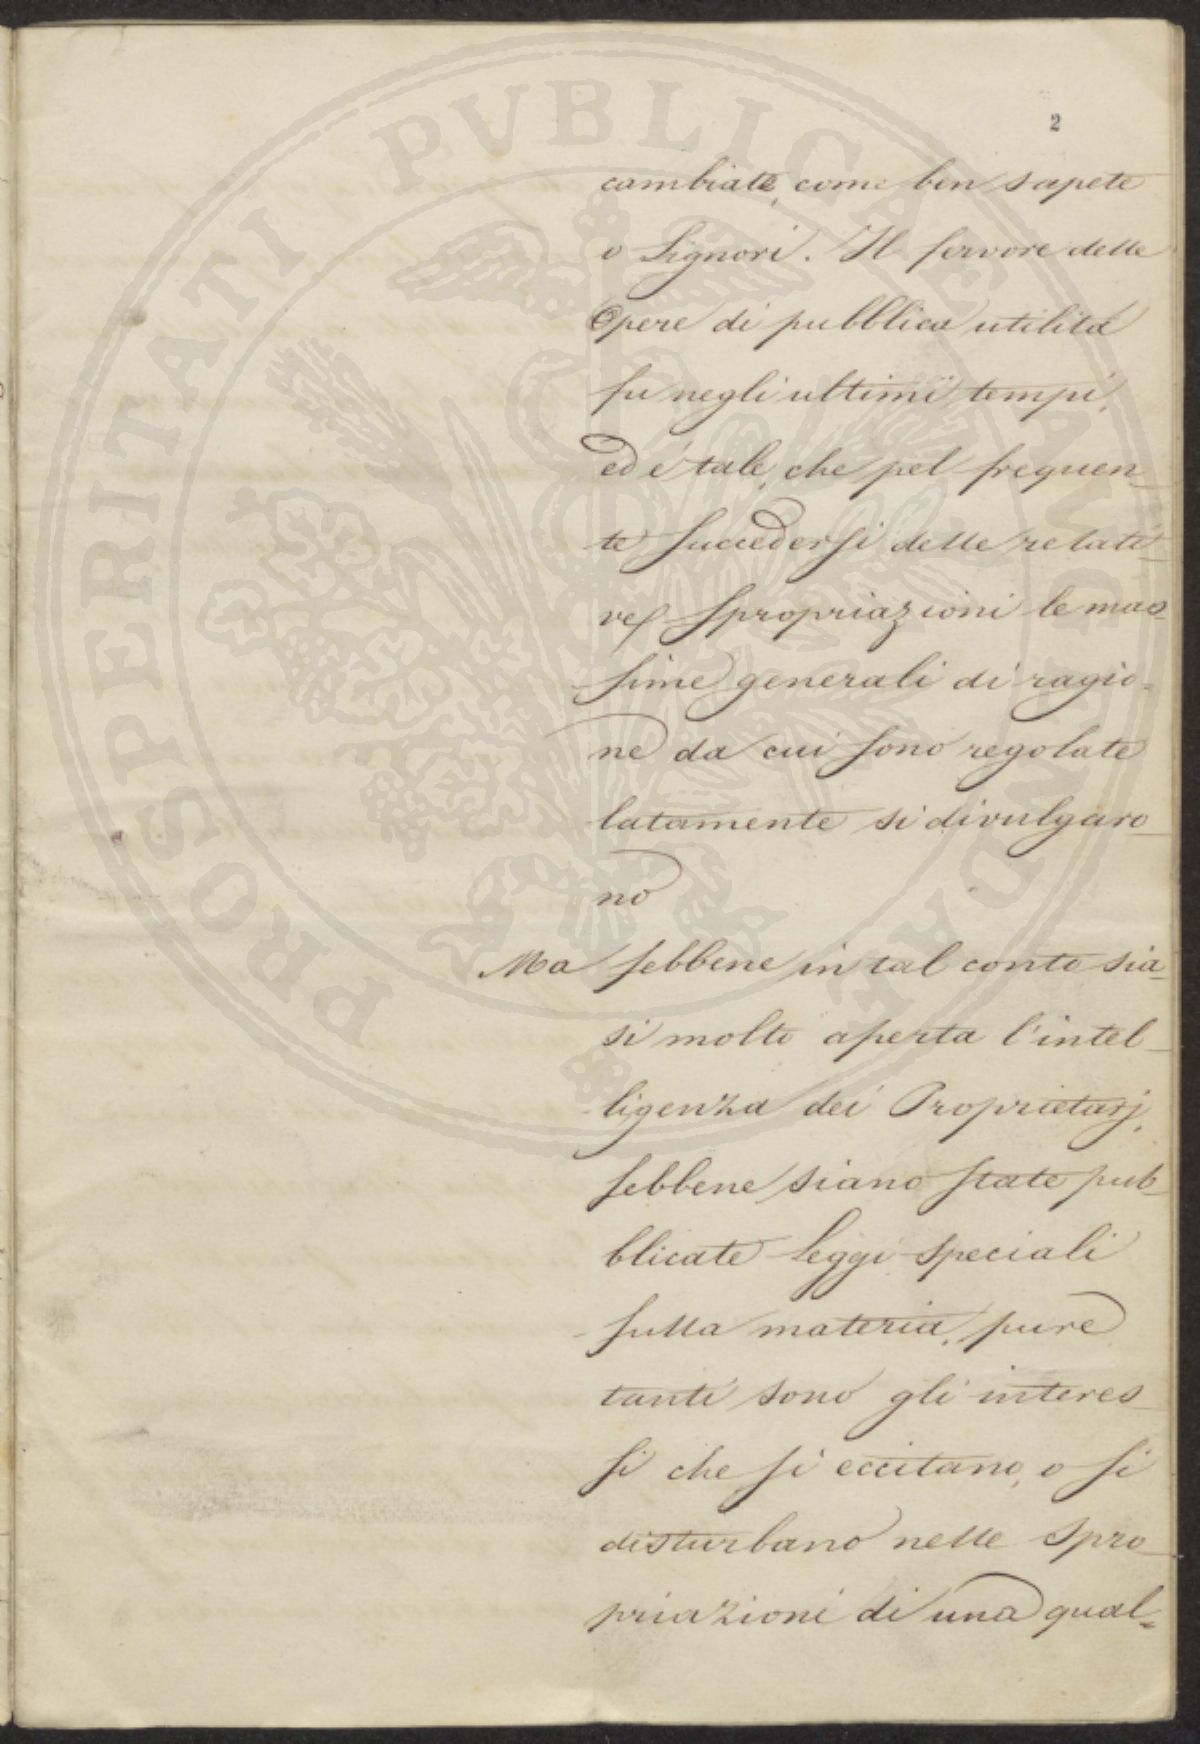 2
cambiate, come ben sapete
o Signori. Il fervore delle
Opere di pubblica utilità
fu negli ultimi tempi,
ed è tale, che pel frequen-
te succedersi delle relati-
ve spropriazioni le mas-
sime generali di ragio-
ne da cui sono regolate
latamente si divulgaro-
no
Ma sebbene in tal conto sia-
si molto aperta l'intel-
ligenza dei Proprietarj,
sebbene siano state pub-
blicate Leggi speciali
sulla materia, pure
tanti sono gli interes-
si che si eccitano, o si
disturbano nelle spro-
priazioni di una qual=
PROSPERITATI PVBLICAE AVGENDAE